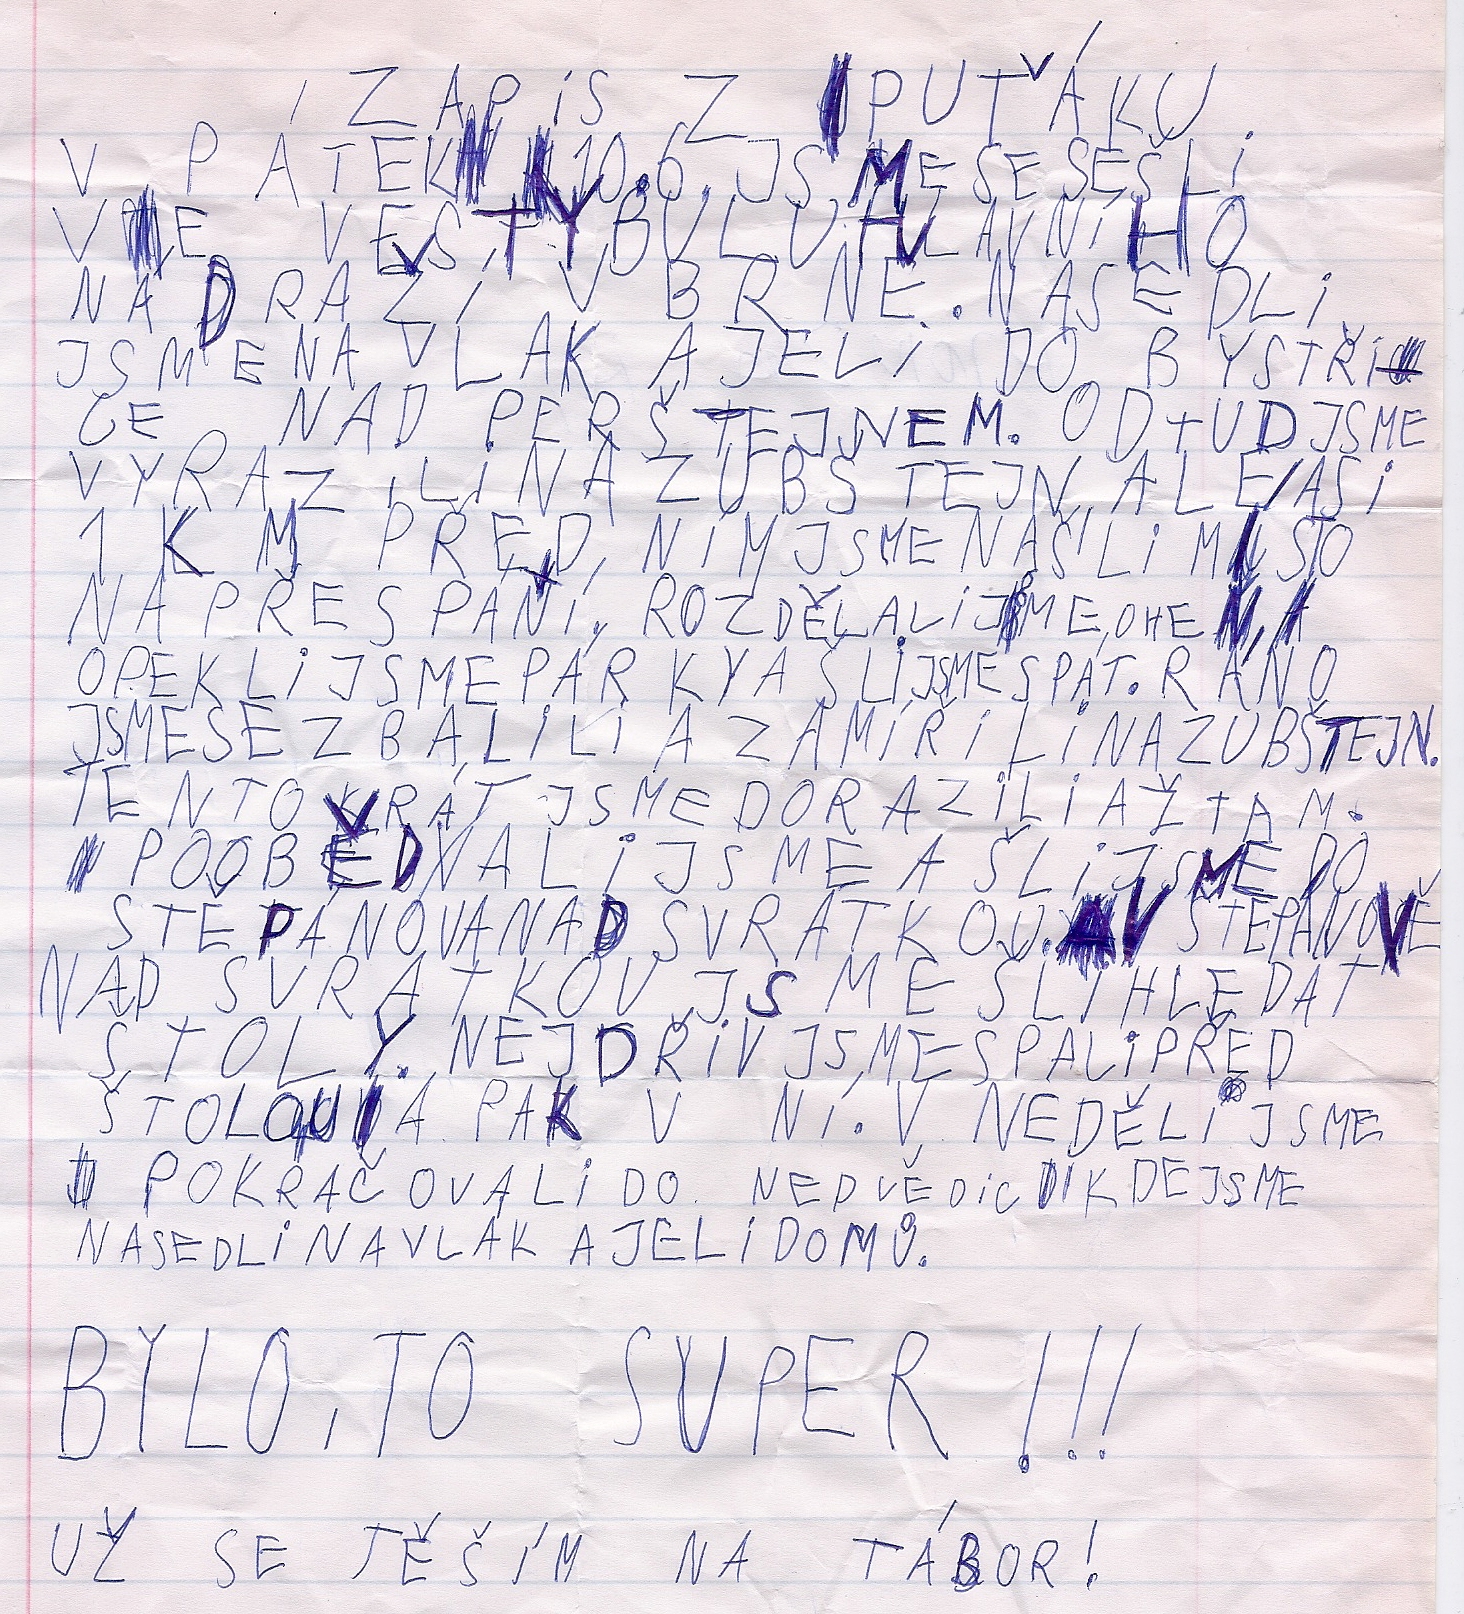 ZÁPIS Z PUŤÁKU.
V PÁTEK 10.6. JSME SE SEŠLI
VE VESTYBULU HLAVNÍHO
NÁDRAŽÍ V BRNĚ. NASEDLI
JSME NA VLAK A JELI DO BYSTŘI
CE NAD PERŠTEJNEM. ODTUD JSME
VYRAZILI NA ZUBŠTEJN, ALE ASI
1 KM PŘED NÍM JSME NAŠLI MÍSTO
NA PŘESPÁNÍ. ROZDĚLALI JSME OHEŇ, A
OPEKLI JSME PÁRKY A ŠLI JSME SPÁT. RÁNO
JSME SE ZBALILI A ZAMÍŘILI NA ZUBŠTEJN.
TENTOKRÁT JSME DORAZILI AŽ TAM.
POOBĚDVALI JSME A ŠLI JSME DO
ŠTĚPÁNOVA NAD SVRATKOU. V ŠTĚPÁNOVĚ
NAD SVRATKOU JSME ŠLI HLEDAT
ŠTOLY. NEJDŘÍV JSME SPALI PŘED
ŠTOLOU A PAK V NÍ. V NEDĚLI JSME
POKRAČOVALI DO NEDVĚDIC KDE JSME
NASEDLI NA VLAK A JELI DOMŮ.
BYLO TO SUPER!!!
UŽ SE TĚŠÍM NA TÁBOR!